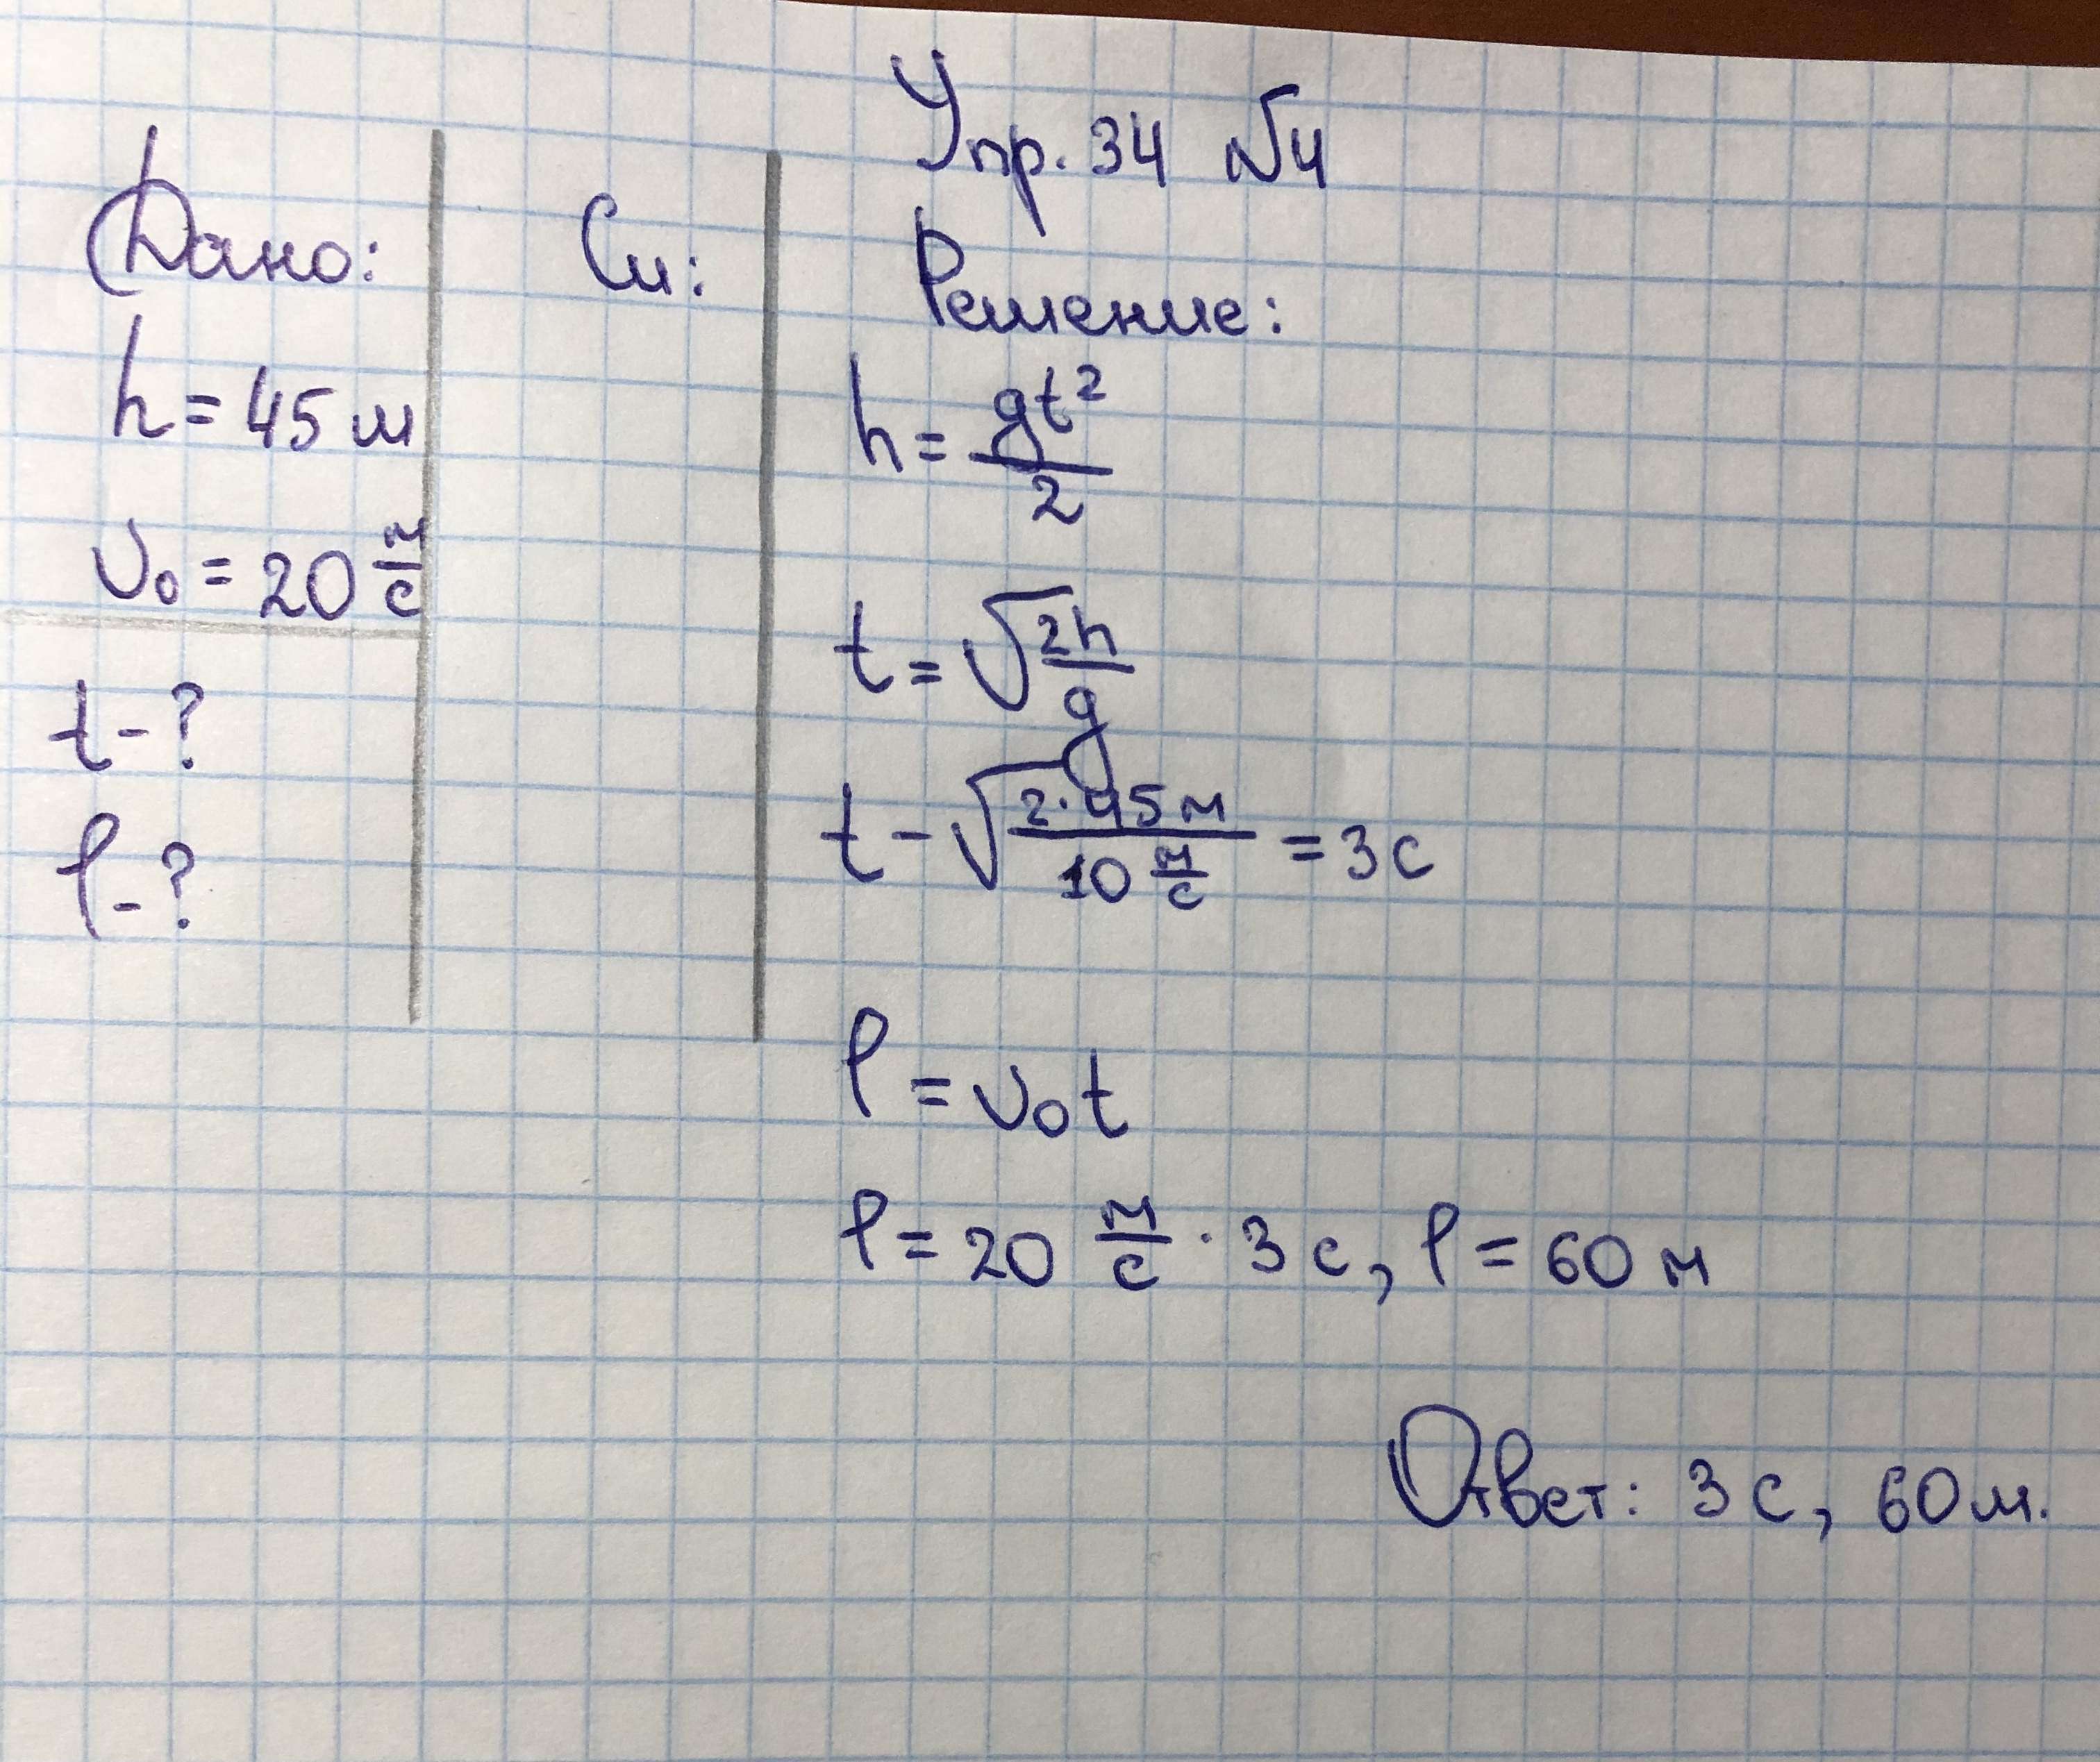 Упр. 34 №4
Дано:
h = 45 м
υ₀ = 20 м/с
t - ?
l - ?
Си:
Решение:
h = gt²/2
t = √2h/g
t - √2·45 м/10 м/с = 3 с
l = υ₀t
l = 20 м/с · 3 с, l = 60 м
Ответ: 3 с, 60 м.